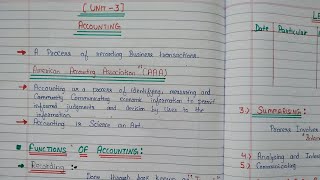 [UNIT-3]
ACCOUNTING
→ A Process of recording Business transactions.
American Accounting Association "(AAA)
→ Accounting as a process of identifying, measuring and
Communicating economic information to permit
informed judgments and decision by Uses to the
information.
→ Accounting is Science an Art.
• FUNCTIONS OF ACCOUNTING:
→ Recording:
Done through book known as
LE
Date Particular
3.) Summarising:
Process Involve
4.) Analysing and Inter
5.) Communicating